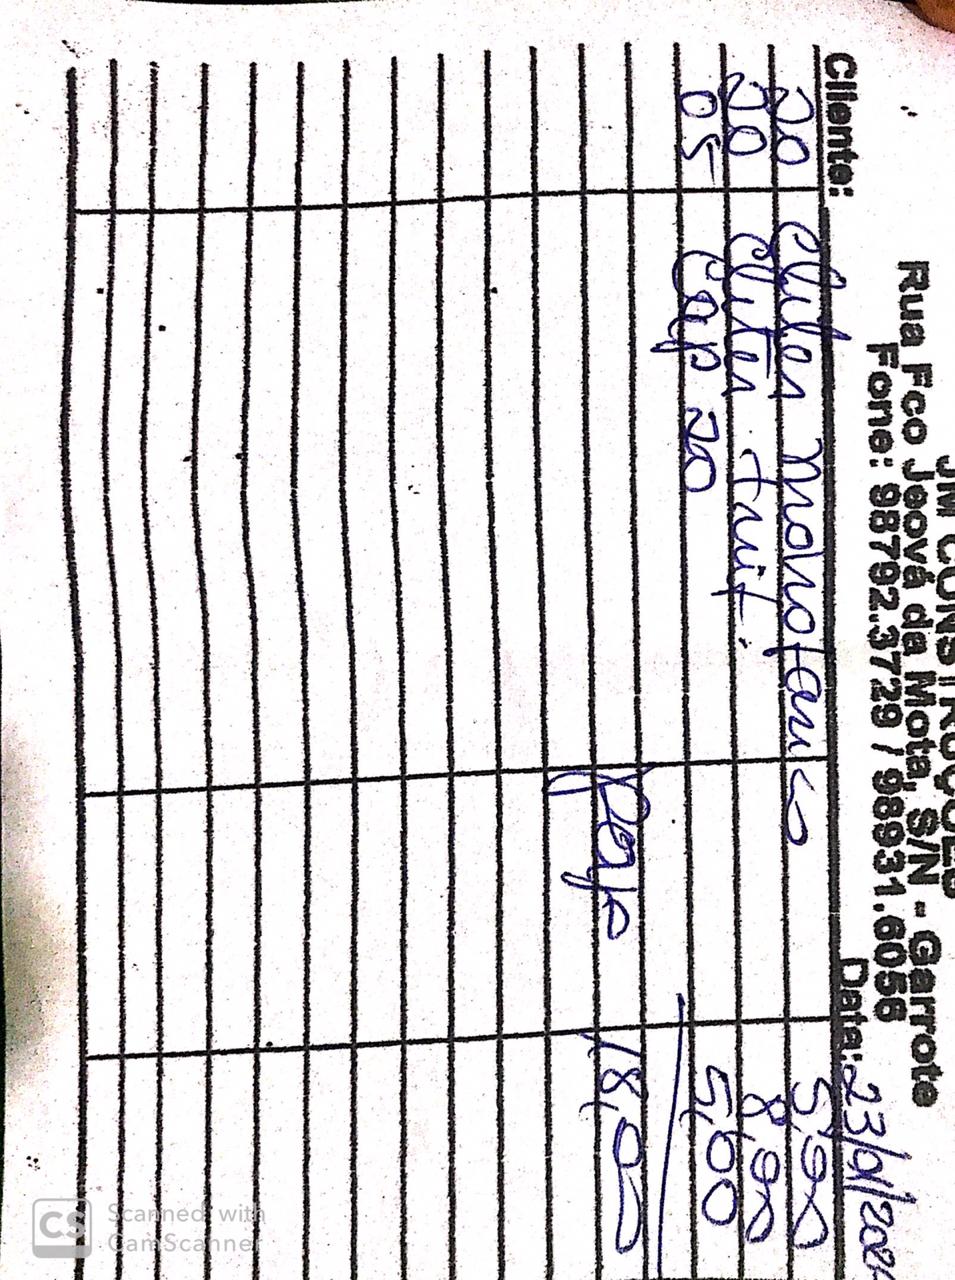 JM CONSTRUÇÕES
Rua Fco Jeová da Mota, S/N - Garrote
Fone: 98792.3729 / 98931.6056
Cliente: Data: 23/01/202
20 Chiten monofasico 5,90
20 Chiten truit. 8,90
05 Cap 20 5,00
Pago 18,00
CS Scanned with
CamScanner